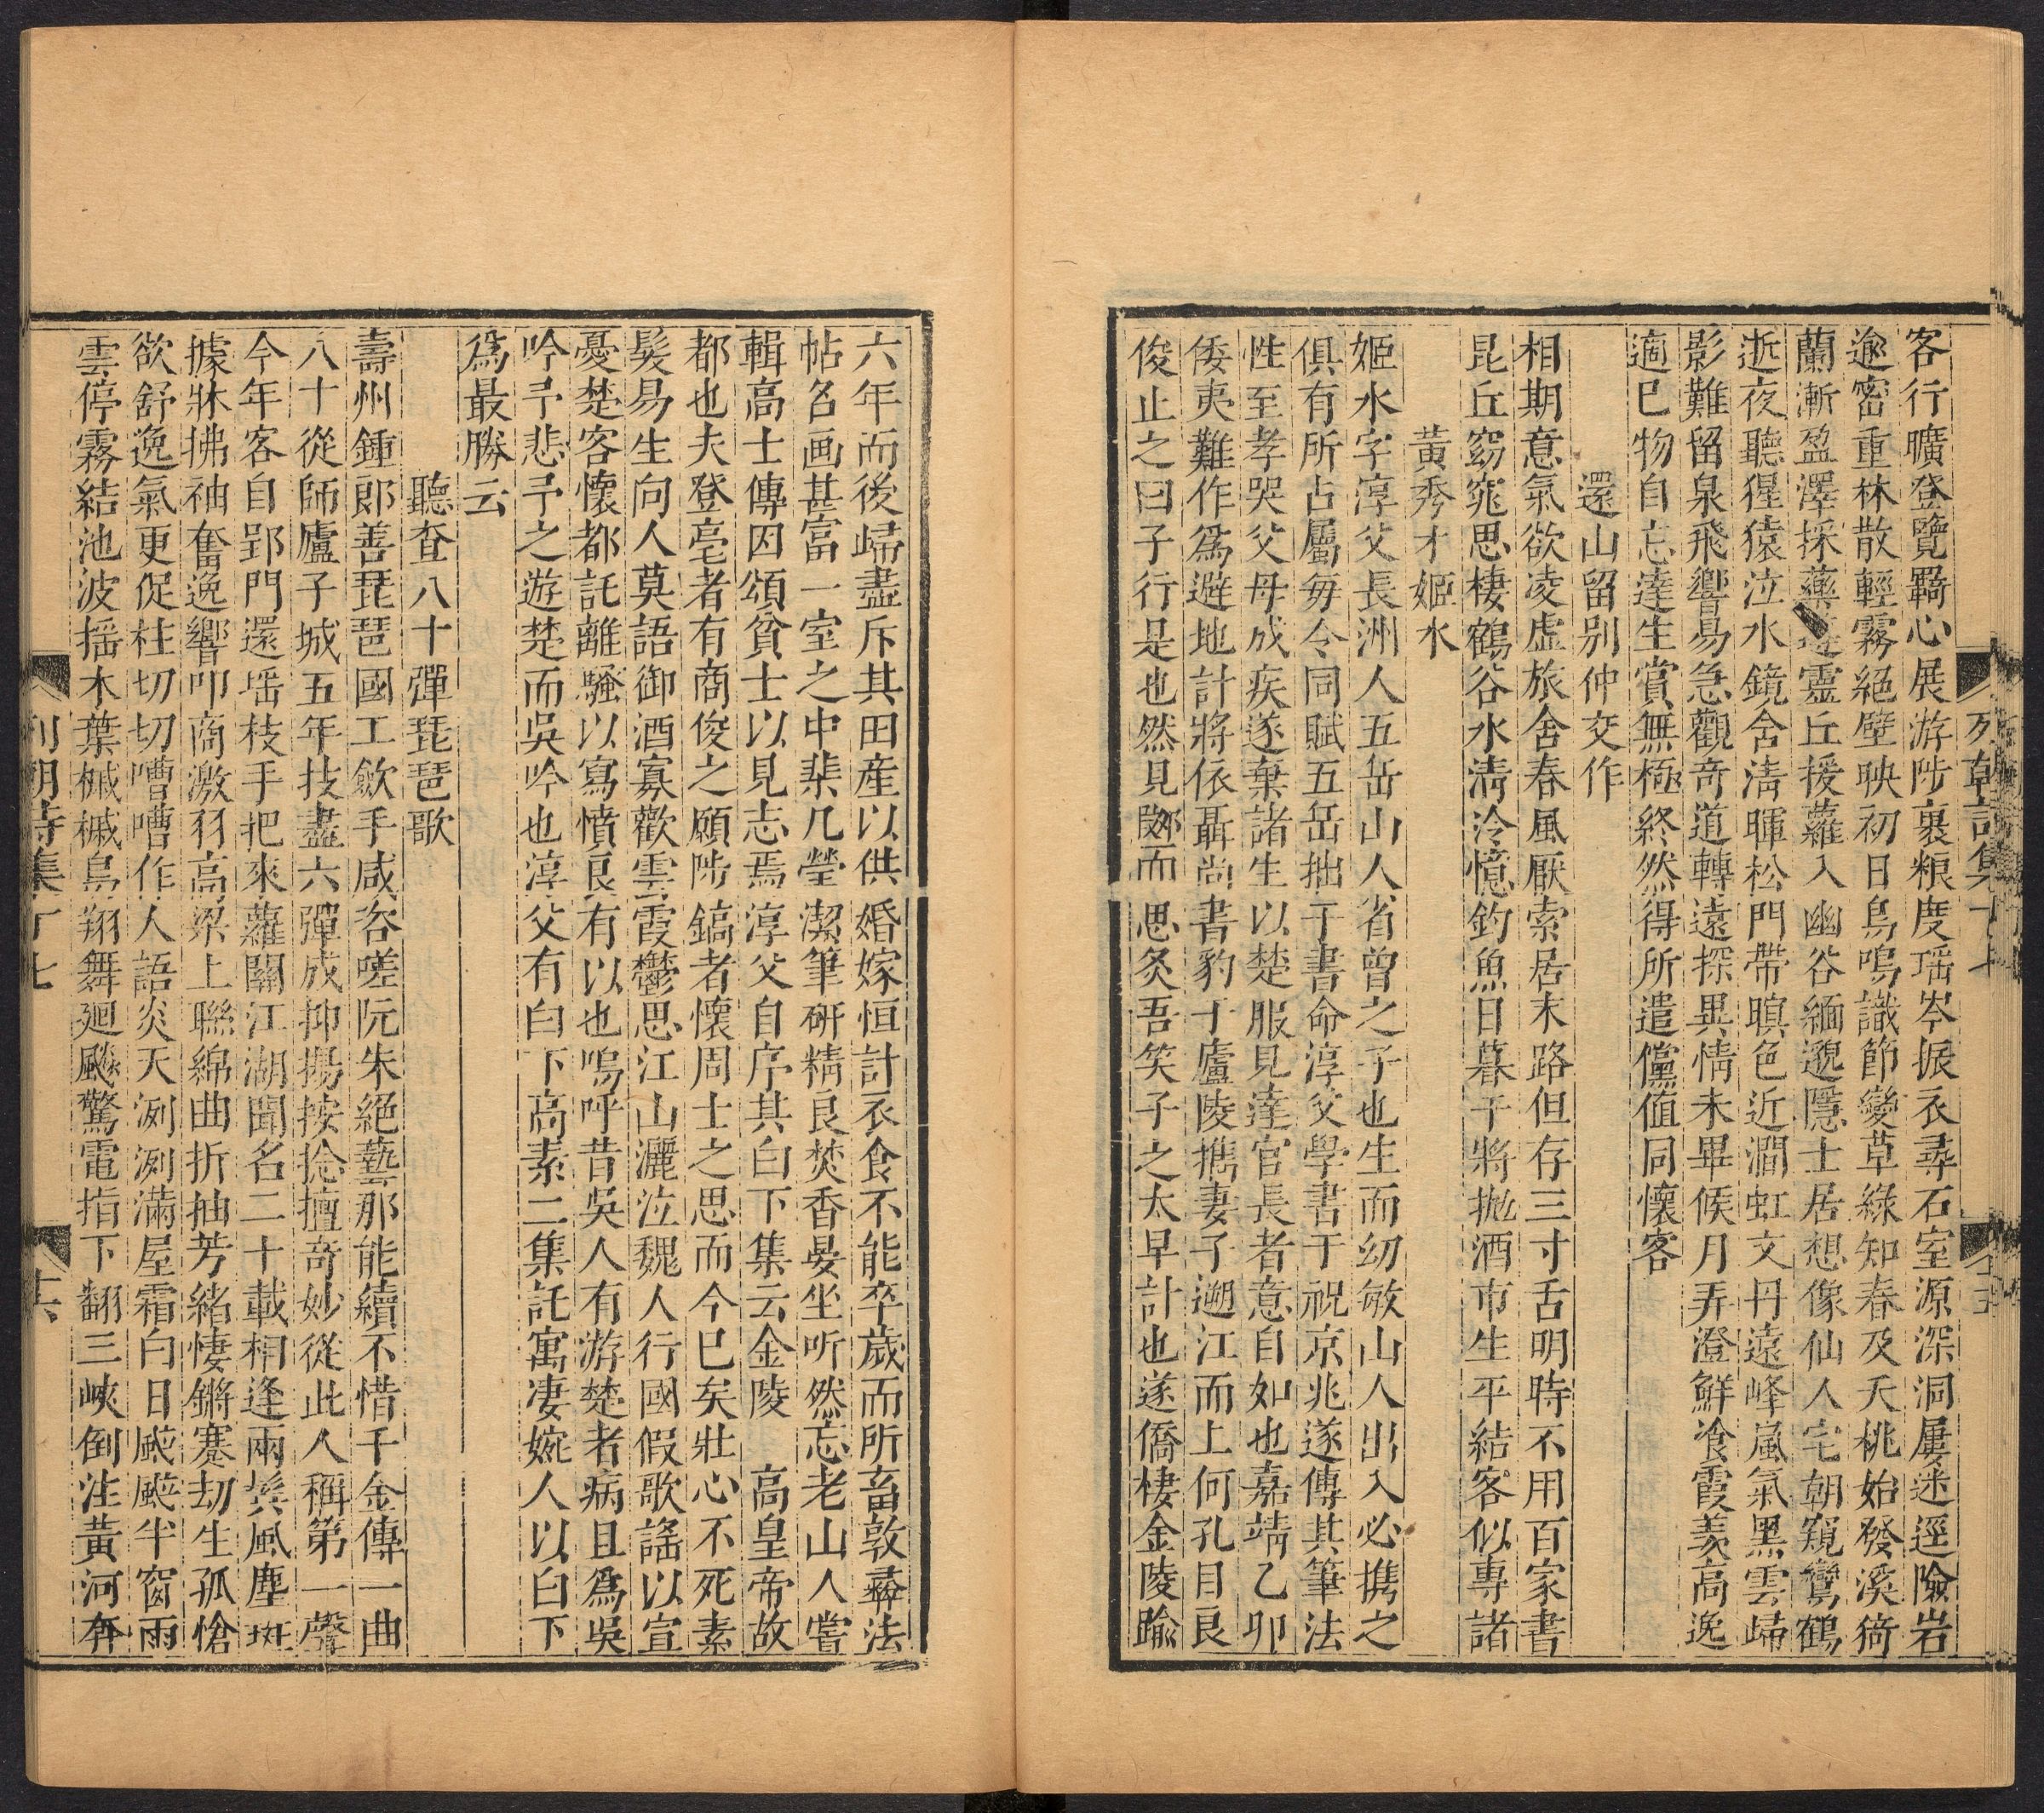 客行曠登覽羇心展游陟裹粮度瑶岑振衣尋石室源深洞屢迷逕險岩
逾密重林散輕霧絕壁映初日鳥鳴識節變草綠知春及夭桃始發溪猗
蘭漸盈澤採藥靈丘援蘿入幽谷緬邈隱士居想像仙人宅朝窺鸞鶴
逝夜聽猩猿泣水鏡含淸暉松門帶暝色近澗虹文丹遠峰嵐氣黑雲歸
影難留泉飛響易急觀奇道轉遠探異情未畢候月弄澄鮮飡霞羡高逸
適已物自忘達生賞無極終然得所遣儻值同懷客
還山留别仲交作
相期意氣欲凌虛旅舍春風厭索居末路但存三寸舌明時不用百家書
昆丘窈窕思棲鶴谷水淸泠憶釣魚日暮干將拋酒市生平結客似專諸
黃秀才姬水
姬水字淳父長洲人五岳山人省曾之子也生而幼敏山人出入必携之
俱有所占屬每令同賦五岳拙于書命淳父學書于祝京兆遂傳其筆法
性至孝哭父母成疾遂棄諸生以楚服見達官長者意自如也嘉靖乙卯
倭夷難作爲避地計將依聶尚書豹于廬陵携妻子遡江而上何孔目良
俊止之曰子行是也然見鄒而思炙吾笑子之太早計也遂僑棲金陵踰
六年而後歸盡斥其田産以供婚嫁恒計衣食不能卒歲而所畜敦彝法
帖名画甚富一室之中棐几瑩潔筆硏精良焚香晏坐听然忘老山人嘗
輯高士傳因頌貧士以見志焉淳父自序其白下集云金陵高皇帝故
都也夫登亳者有商俊之願陟鎬者懷周士之思而今已矣壯心不死素
髮易生向人莫語御酒寡歡雲霞鬱思江山灑泣魏人行國假歌謠以宣
憂楚客懷都託離騷以寫憤良有以也嗚呼昔吳人有游楚者病且爲吳
吟予悲予之遊楚而吳吟也淳父有白下高素二集託寓凄婉人以白下
爲最勝云
聽查八十彈琵琶歌
壽州鍾郎善琵琶國工歛手咸咨嗟阮朱絕藝那能續不惜千金傳一曲
八十從師廬子城五年技盡六彈成抑揚按捻擅奇妙從此人稱第一聲
今年客自郢門還瑶枝手把來蘿關江湖聞名二十載相逢兩鬂風塵斑
據牀拂袖奮逸響叩商激羽高梁上聯綿曲折抽芳緒悽鏘蹇刧生孤愴
欲舒逸氣更促柱切切嘈嘈作人語炎天洌洌滿屋霜白日颼颼半窗雨
雲停霧結池波揺木葉槭槭鳥翔舞廻飈驚電指下翻三峽倒洼黃河奔
列朝詩集丁七
十六